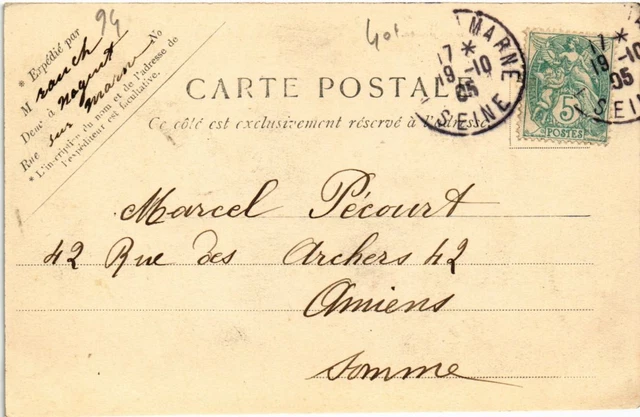 94
* Expédié par
M rauch
Demt à Nogent
Rue sur Marne No
* L'inscription du nom et de l'adresse de
l'expéditeur est facultative.
MARNE
17 *
19 -10
05
SEINE
17 *
19 -10
05
SEINE
5
POSTES
CARTE POSTAL
Ce côté est exclusivement réservé à l'adresse
Marcel Pécourt
42 Rue des Archers 42
Amiens
Somme